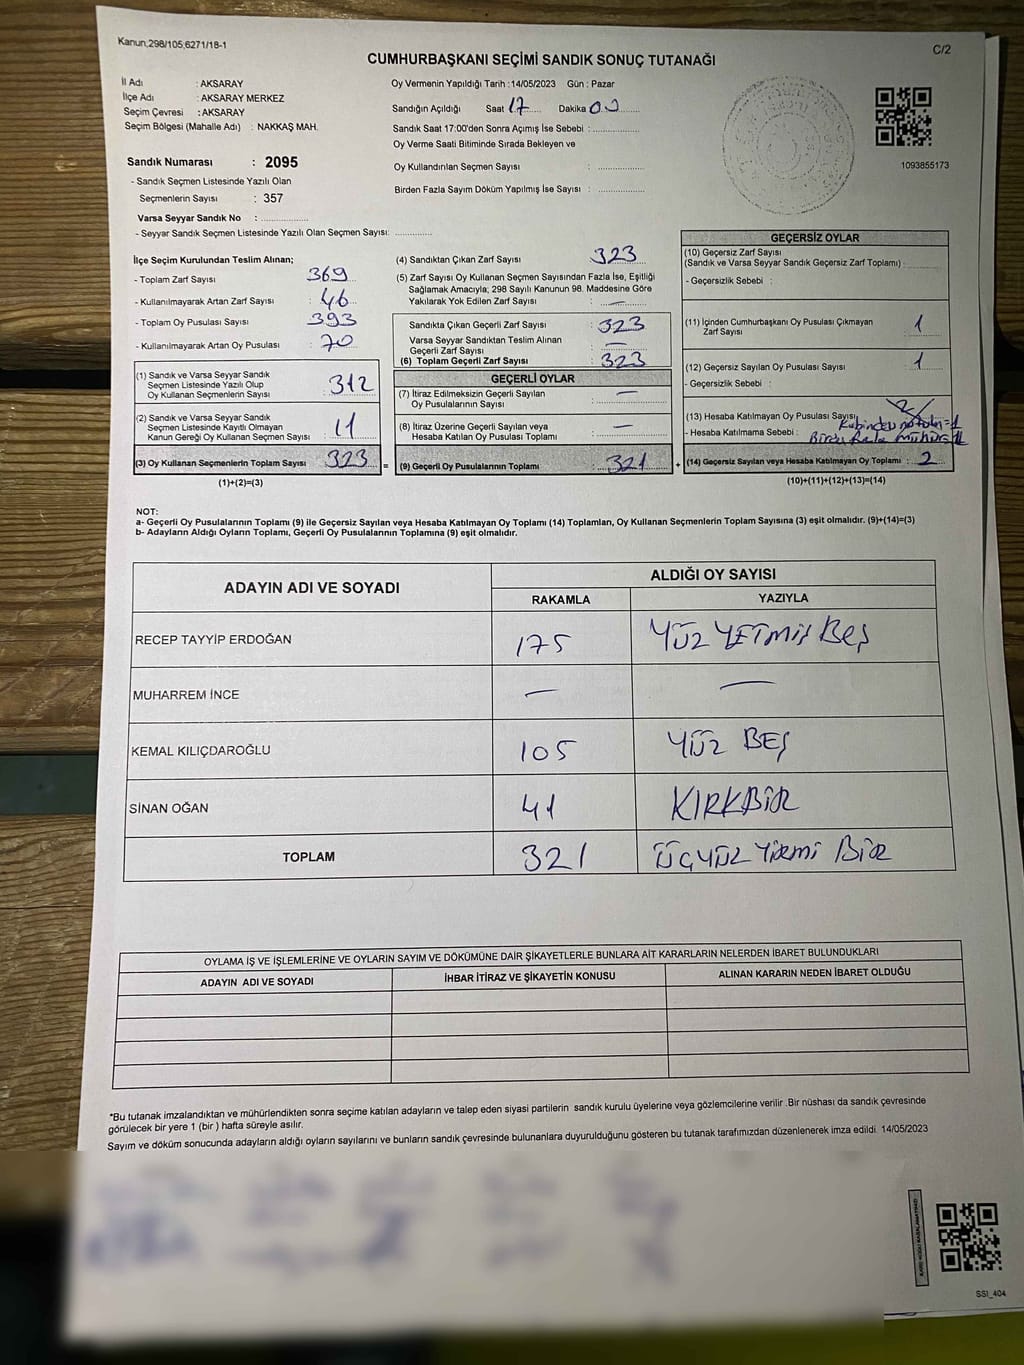 Kanun;298/105;6271/18-1
C/2
CUMHURBAŞKANI SEÇİMİ SANDIK SONUÇ TUTANAĞI
İl Adı : AKSARAY
İlçe Adı : AKSARAY MERKEZ
Seçim Çevresi : AKSARAY
Seçim Bölgesi (Mahalle Adı) : NAKKAŞ MAH.
Sandık Numarası : 2095
- Sandık Seçmen Listesinde Yazılı Olan
Seçmenlerin Sayısı : 357
Varsa Seyyar Sandık No : ............
- Seyyar Sandık Seçmen Listesinde Yazılı Olan Seçmen Sayısı: ............
Oy Vermenin Yapıldığı Tarih : 14/05/2023 Gün : Pazar
Sandığın Açıldığı Saat 17 Dakika 00
Sandık Saat 17:00'den Sonra Açımış İse Sebebi : ............
Oy Verme Saati Bitiminde Sırada Bekleyen ve
Oy Kullandırılan Seçmen Sayısı : ............
Birden Fazla Sayım Döküm Yapılmış İse Sayısı : ............
1093855173
İlçe Seçim Kurulundan Teslim Alınan;
- Toplam Zarf Sayısı : 369
- Kullanılmayarak Artan Zarf Sayısı : 46
- Toplam Oy Pusulası Sayısı : 393
- Kullanılmayarak Artan Oy Pusulası : 70
(1) Sandık ve Varsa Seyyar Sandık
Seçmen Listesinde Yazılı Olup
Oy Kullanan Seçmenlerin Sayısı : 312
(2) Sandık ve Varsa Seyyar Sandık
Seçmen Listesinde Kayıtlı Olmayan
Kanun Gereği Oy Kullanan Seçmen Sayısı : 11
(3) Oy Kullanan Seçmenlerin Toplam Sayısı : 323
(1)+(2)=(3)
(4) Sandıktan Çıkan Zarf Sayısı : 323
(5) Zarf Sayısı Oy Kullanan Seçmen Sayısından Fazla İse, Eşitliği
Sağlamak Amacıyla; 298 Sayılı Kanunun 98. Maddesine Göre
Yakılarak Yok Edilen Zarf Sayısı : —
Sandıkta Çıkan Geçerli Zarf Sayısı : 323
Varsa Seyyar Sandıktan Teslim Alınan
Geçerli Zarf Sayısı : —
(6) Toplam Geçerli Zarf Sayısı : 323
GEÇERLİ OYLAR
(7) İtiraz Edilmeksizin Geçerli Sayılan
Oy Pusulalarının Sayısı : —
(8) İtiraz Üzerine Geçerli Sayılan veya
Hesaba Katılan Oy Pusulası Toplamı : —
= (9) Geçerli Oy Pusulalarının Toplamı : 321 +
GEÇERSİZ OYLAR
(10) Geçersiz Zarf Sayısı
(Sandık ve Varsa Seyyar Sandık Geçersiz Zarf Toplamı) :
- Geçersizlik Sebebi :
(11) İçinden Cumhurbaşkanı Oy Pusulası Çıkmayan
Zarf Sayısı : 1
(12) Geçersiz Sayılan Oy Pusulası Sayısı : 1
- Geçersizlik Sebebi :
(13) Hesaba Katılmayan Oy Pusulası Sayısı
- Hesaba Katılmama Sebebi :
(14) Geçersiz Sayılan veya Hesaba Katılmayan Oy Toplamı : 2
(10)+(11)+(12)+(13)=(14)
NOT:
a- Geçerli Oy Pusulalarının Toplamı (9) ile Geçersiz Sayılan veya Hesaba Katılmayan Oy Toplamı (14) Toplamları, Oy Kullanan Seçmenlerin Toplam Sayısına (3) eşit olmalıdır. (9)+(14)=(3)
b- Adayların Aldığı Oyların Toplamı, Geçerli Oy Pusulalarının Toplamına (9) eşit olmalıdır.
ADAYIN ADI VE SOYADI
ALDIĞI OY SAYISI
RAKAMLA YAZIYLA
RECEP TAYYİP ERDOĞAN 175 YÜZ YETMİŞ BEŞ
MUHARREM İNCE — —
KEMAL KILIÇDAROĞLU 105 YÜZ BEŞ
SİNAN OĞAN 41 KIRKBİR
TOPLAM 321 ÜÇYÜZ YİRMİ BİR
OYLAMA İŞ VE İŞLEMLERİNE VE OYLARIN SAYIM VE DÖKÜMÜNE DAİR ŞİKAYETLERLE BUNLARA AİT KARARLARIN NELERDEN İBARET BULUNDUKLARI
ADAYIN ADI VE SOYADI İHBAR İTİRAZ VE ŞİKAYETİN KONUSU ALINAN KARARIN NEDEN İBARET OLDUĞU
*Bu tutanak imzalandıktan ve mühürlendikten sonra seçime katılan adayların ve talep eden siyasi partilerin sandık kurulu üyelerine veya gözlemcilerine verilir .Bir nüshası da sandık çevresinde
görülecek bir yere 1 (bir ) hafta süreyle asılır.
Sayım ve döküm sonucunda adayların aldığı oyların sayılarını ve bunların sandık çevresinde bulunanlara duyurulduğunu gösteren bu tutanak tarafımızdan düzenlenerek imza edildi. 14/05/2023
SSI_404